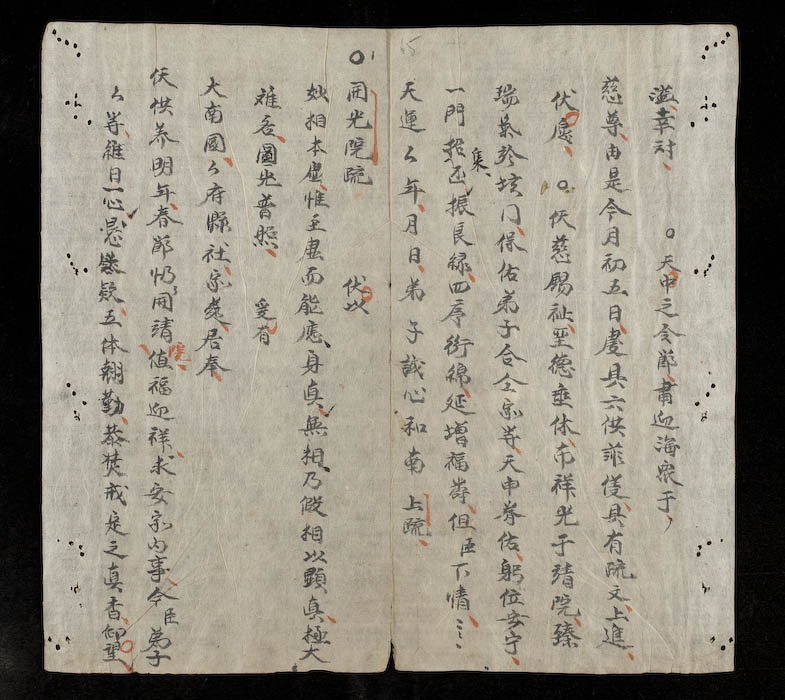 溢幸対 天中之令節肅迎海眾于
慈尊由是今月初五日慶具六供菲儀具有疏文上進
伏愿 伏慈錫祉至德垂休布祥光于靖院臻
瑞氣於垓門保佑弟子合全家等天申眷佑躬位安宁
一門招集吉振良緣四序衍綿延增福壽但臣下情云云
天運厶年月日弟子誠心和南上疏
15
開光院疏 伏以
妙相本虛惟至虛而能應身真無相乃假相以顯真極大
难名圓光普照 爰有
大南國厶府縣社家處居奉
仸供养明年春節仍開靖院值福迎祥求安家内事今臣弟子
厶等維日一心懇 五体翹勤恭焚戒定之真香仰望